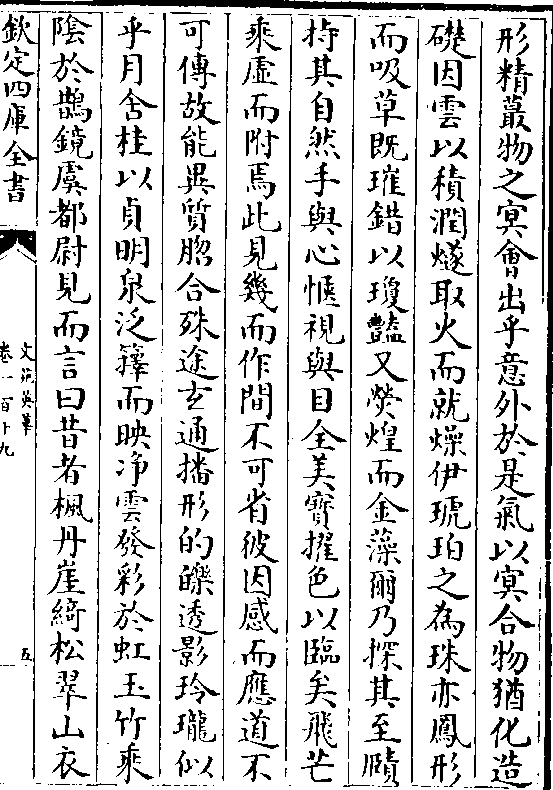 形精蕞物之㝠會出乎意外於是氣以㝠合物猶化造
礎因雲以積潤燧取火而就燥伊琥珀之為珠亦鳳形
而吸草既璀錯以瓊豔又熒煌而金藻爾乃探其至賾
持其自然手與心愜視與目全美寳擢色以臨矣飛芒
乘虛而附焉此見幾而作間不可省彼因感而應道不
可傳故能異質脗合殊途玄通播形的皪透影玲瓏似
乎月舍桂以貞明泉泛籜而映浄雲發彩於虹玉竹乘
陰於鵲鏡虞都尉見而言曰昔者楓丹崖綺松翠山衣
欽定四庫全書
文苑英華
卷一百十九
五